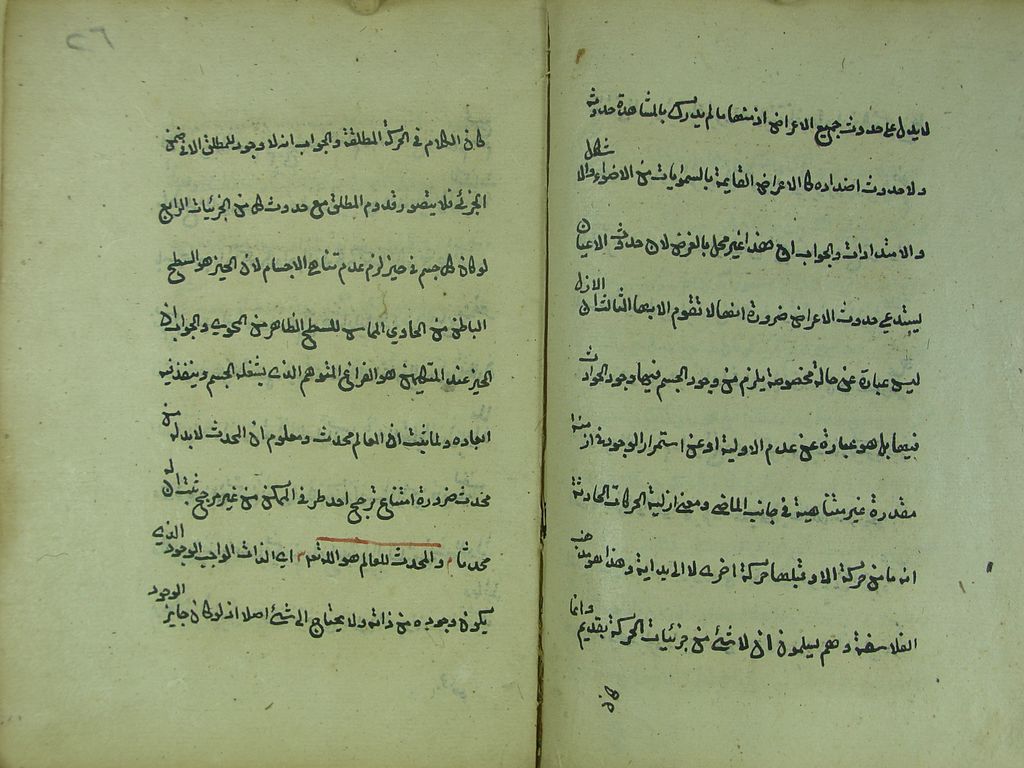 لا يدل على حدوث جميع الاعراض اذ منها ما لم يدرك بالمشاهدة حدوثه
ولا حدوث اضداده كما الاعراض القايمة بالسمويات من الاضواء والاشكال
والامتدادات والجواب ان هذا غير مخل بالغرض لان حدوث الاعيان
يستدعي حدوث الاعراض ضرورة انها لا تقوم الا بها الثالث ان الازل
ليس عبارة عن حالة مخصوصة يلزم من وجود الجسم فيها وجود الحوادث
فيها بل هو عبارة عن عدم الاولية او عن استمرار الوجود في ازمنة
مقدرة غير متناهية في جانب الماضي ومعنى ازلية الحركات الحادثة
انه ما من حركة الا وقبلها حركة اخرى لا الى بداية وهذا هو مذهب
الفلاسفة وهم يسلمون ان لا شئ من جزئيات الحركة بقديم وانما
كان
٦٢
كان الكلام في الحركة المطلقة والجواب انه لا وجود للمطلق الا في ضمن
الجزئي فلا يتصور قدوم المطلق مع حدوث كل من الجزئيات الرابع
لو كان كل جسم في حيز لزم عدم تناهي الاجسام لان الحيز هو السطح
الباطن من الحاوي المماس للسطح الظاهر من المحوي والجواب ان
الحيز عند المتكلمين هو الفراغ المتوهم الذي يشغله الجسم وينفذ فيه
ابعاده ولما ثبت ان العالم محدث ومعلوم ان المحدث لا بد له من
محدث ضرورة امتناع ترجح احد طرفي الممكن من غير مرجح ثبت ان له
محدثا م والمحدث للعالم هو الله تعم اي الذات الواجب الوجود الذي
يكون وجوده من ذاته ولا يحتاج الى شئ اصلا اذ لو كان جايز الوجود